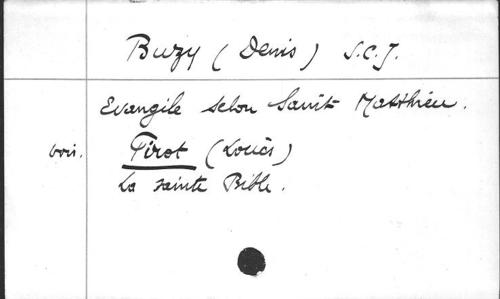 Buzy (Denis) S.C.J.
Evangile selon Saint Matthieu.
voir. Pirot (Louis)
La sainte Bible.